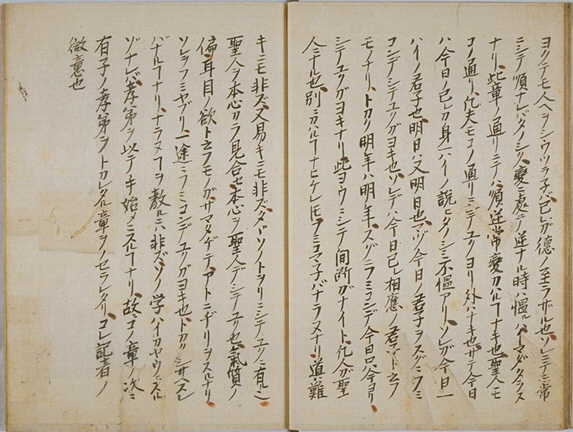 ヨクテモ人ヘヲシウツラ子バ己ガ徳ノ至ラザル也ソレテミ常
ニシテ順ナレバタノシク変ニ処シ逆ナル時ハ慍ルハイマダタラヌ
ナリ此章ノ通リニテハ順逆常変カハルコナキ也聖人モ
コノ通リ凡夫モコノ通リニテユクヨリ外ハナキ也サテ今日
ハ今日ノ己レカ身一ハイノ説ヒタノシミ不慍アリソレガ今日一
ハイノ君子也明日ハ又明日也マヅ今日ノ君子ヲスグニフミ
コンデシテユクガヨキ也ソレデハ今日己レ相應ノ君子ト云フ
モノナリトカク明年ハ明年スグニフミコンデ今日只今ヨリ
シテユクガヨキナリ此ヨウニシテ間断ガナイト凡人ガ聖
人ニナル也別ニカハルコナヒケレ𪜈フミコマ子バナラヌナリ道難
キニモ非ズ又易キニモ非ズタヾソノトヲリニシテユクニ有ル
聖人ヲ本心カラ見合セ本心ヲ聖人デシテユク也氣質ノ
偏耳目ノ欲ト云フモノガサマタゲテアトニヂリヲスルナリ
ソレヲフミヤブリ一途ニフミコンデユクガヨキ也トカク
バナルコナリナラヌコヲ教ルニハ非ズソノ学ハイカヤウニスル
ゾナレバ孝弟ヲ以テ始メニスルコナリ故コノ章ノ次ニ
有子ノ孝弟ヲトカレタル章ヲノセラレタリコレ記者ノ
微意也